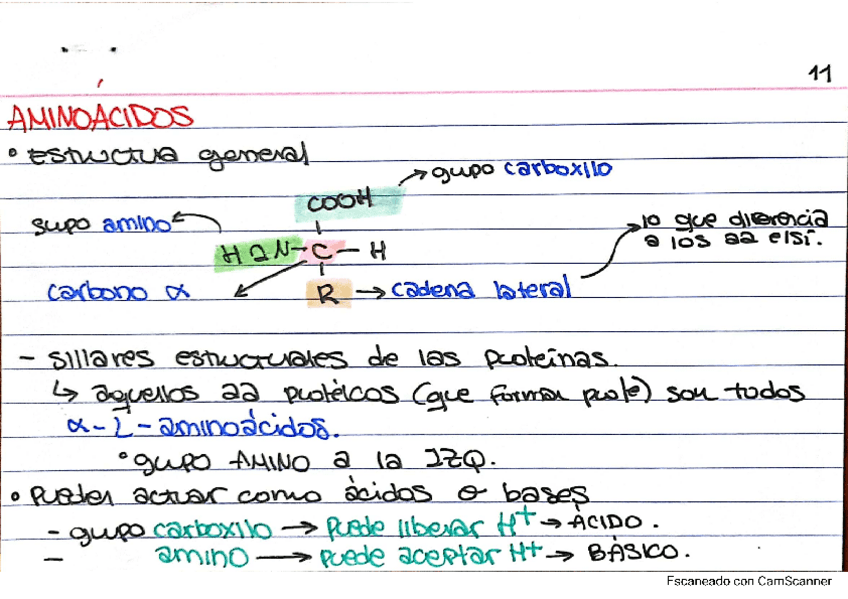 11
AMINOÁCIDOS
• estructua general
→ gupo carboxilo
COOH
gupo amino
lo que diferencia
a los aa e/sí.
H2N-C-H
carbono α
R → cadena lateral
- sillares estructurales de las proteínas.
↳ aquellos aa protéicos (que forman prote) son todos
α-L-aminoácidos.
• gupo AMINO a la IZQ.
• Pueden actuar como ácidos o bases
- gupo carboxilo → Puede liberar H+ → ÁCIDO.
- amino → puede aceptar H+ → BÁSICO.
Escaneado con CamScanner